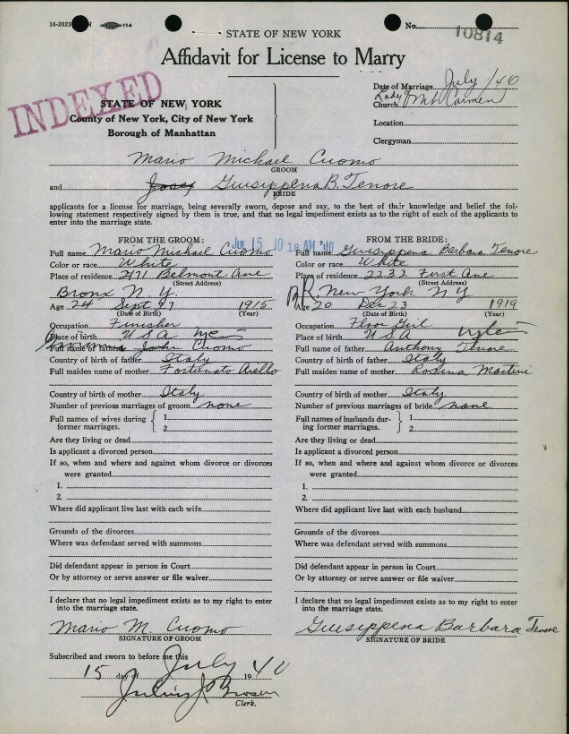 STATE OF NEW YORK
No. 10814
Affidavit for License to Marry
INDEXED
Date of Marriage July /40
Lady Mt Carmen
Church
STATE OF NEW YORK
County of New York, City of New York
Borough of Manhattan
Location
Clergyman
Mario Michael Cuomo
GROOM
and Giusippena B. Tenore
BRIDE
applicants for a license for marriage, being severally sworn, depose and say, to the best of their knowledge and belief the fol-
lowing statement respectively signed by them is true, and that no legal impediment exists as to the right of each of the applicants to
enter into the marriage state.
JUL 15 10 18 AM '40
FROM THE GROOM:
Full name Mario Michael Cuomo
Color or race White
Place of residence 2471 Belmont Ave
(Street Address)
Bronx N. Y.
Age 24 Sept 27 1915
(Date of Birth) (Year)
Occupation Finisher
Place of birth U S A NYC
Full name of father John Cuomo
Country of birth of father Italy
Full maiden name of mother Fortunato Aiello
Country of birth of mother Italy
Number of previous marriages of groom none
Full names of wives during former marries. 1
2
Are they living or dead
Is applicant a divorced person
If so, when and where and against whom divorce or divorces
were granted
1.
2.
Where did applicant live last with each wife
Grounds of the divorces
Where was defendant served with summons
Did defendant appear in person in Court
Or by attorney or serve answer or file waiver
I declare that no legal impediment exists as to my right to enter
into the marriage state.
Mario M. Cuomo
SIGNATURE OF GROOM
FROM THE BRIDE:
Full name Giusippena Barbara Tenore
Color or race White
Place of residence 2232 First Ave
(Street Address)
New York N Y
Age 20 Dec 23 1919
(Date of Birth) (Year)
Occupation Floor Girl
Place of birth U S A NYC
Full name of father Anthony Tenore
Country of birth of father Italy
Full maiden name of mother Rosina Martini
Country of birth of mother Italy
Number of previous marriages of bride none
Full names of husbands dur-
ing former marriages. 1
2
Are they living or dead
Is applicant a divorced person
If so, when and where and against whom divorce or divorces
were granted
1.
2.
Where did applicant live last with each husband
Grounds of the divorces
Where was defendant served with summons
Did defendant appear in person in Court
Or by attorney or serve answer or file waiver
I declare that no legal impediment exists as to my right to enter
into the marriage state.
Giusippena Barbara Tenore
SIGNATURE OF BRIDE
Subscribed and sworn to before me this
15 day of July 1940
Clerk.